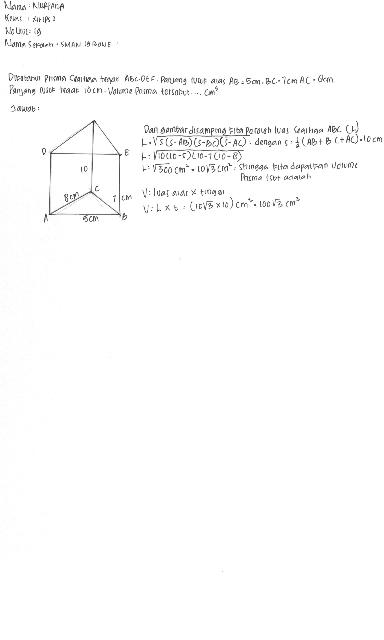 Nama : NURFAIKA
Kelas : XII IPS 2
No Urut : 19
Nama Sekolah : SMAN 19 BONE
Diketahui Prisma segitiga tegak ABC.DEF. Panjang rusuk alas AB = 5cm, BC = 7cm AC = 8cm
Panjang rusuk tegak 10 cm. Volume Prisma tersebut .... cm³
Jawab :
Dari gambar disamping kita Peroleh luas Segitiga ABC (L)
L = √s(s-AB)(s-BC)(s-AC) , dengan s = ½ (AB + BC + AC) = 10 cm
L = √10(10-5)(10-7)(10-8)
L = √300 cm² = 10√3 cm² . Sehingga kita dapatkan Volume
Prisma tsbt adalah
V = luas alas × tinggi
V = L × t = (10√3 × 10) cm³ = 100√3 cm³
D
E
10
8cm
C
7 cm
A
5cm
B